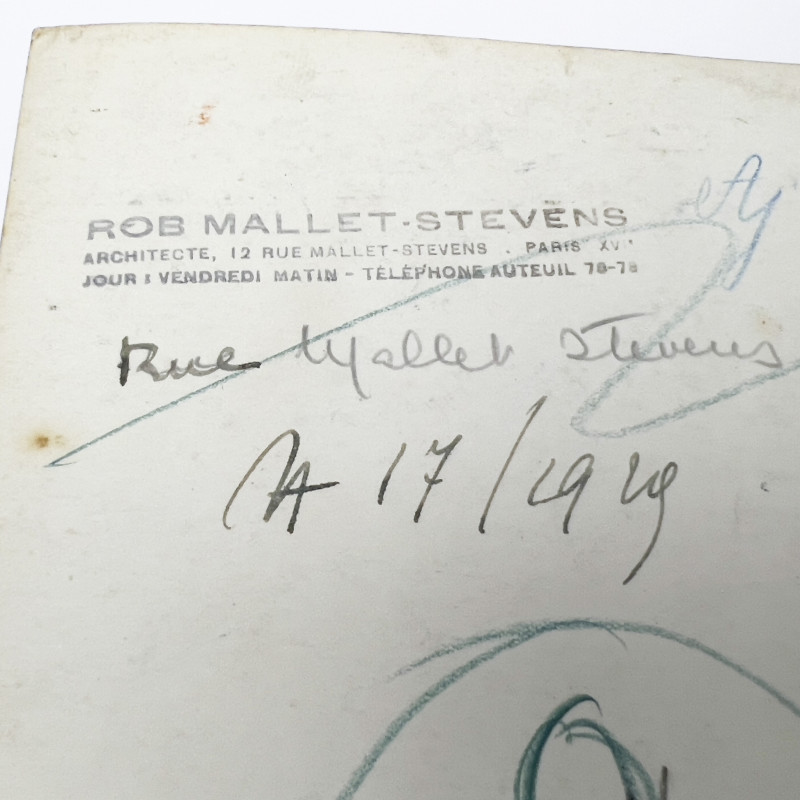 ROB MALLET-STEVENS
ARCHITECTE, 12 RUE MALLET-STEVENS . PARIS XVIᵉ
JOUR : VENDREDI MATIN - TÉLÉPHONE AUTEUIL 78-78
Rue Mallet Stevens
A 17/1929